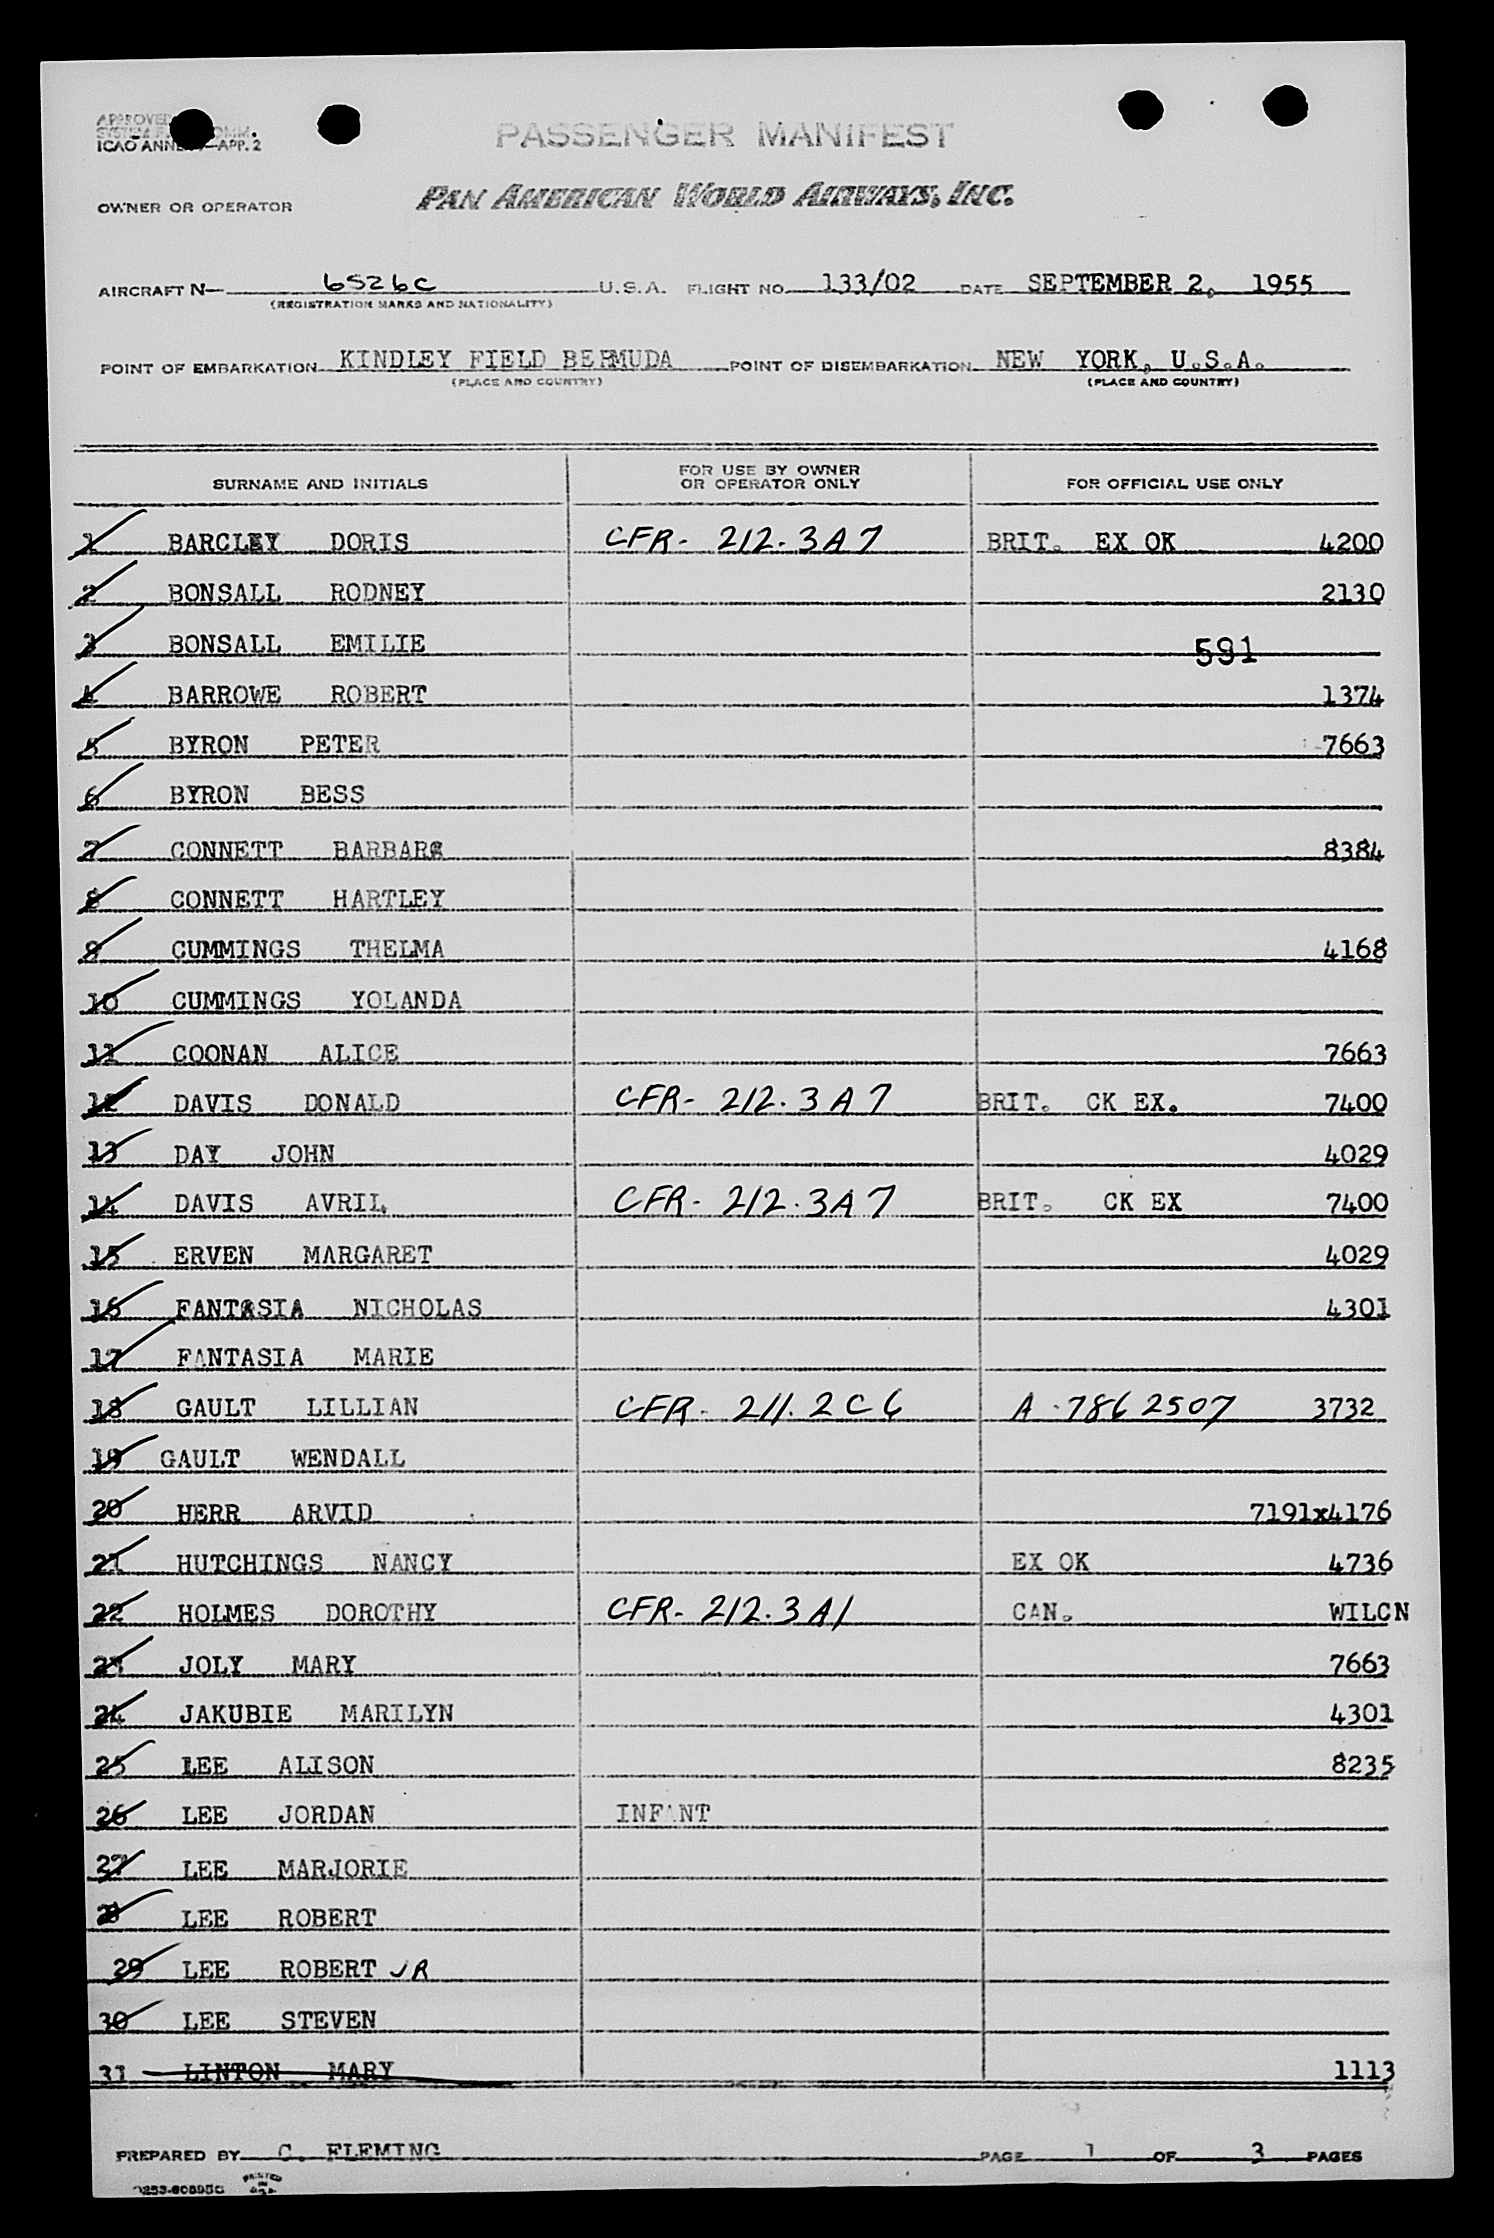 ICAO ANN APP. 2
PASSENGER MANIFEST
PAN AMERICAN WORLD AIRWAYS, INC.
OWNER OR OPERATOR
AIRCRAFT N— 6526C U.S.A. FLIGHT NO. 133/02 DATE SEPTEMBER 2, 1955
(REGISTRATION MARKS AND NATIONALITY)
POINT OF EMBARKATION KINDLEY FIELD BERMUDA POINT OF DISEMBARKATION NEW YORK, U.S.A.
(PLACE AND COUNTRY) (PLACE AND COUNTRY)
SURNAME AND INITIALS FOR USE BY OWNER OR OPERATOR ONLY FOR OFFICIAL USE ONLY
1 BARCLEY DORIS CFR- 212.3A7 BRIT. EX OK 4200
2 BONSALL RODNEY 2130
3 BONSALL EMILIE 591
4 BARROWE ROBERT 1374
5 BYRON PETER 7663
6 BYRON BESS
7 CONNETT BARBARA 8384
8 CONNETT HARTLEY
9 CUMMINGS THELMA 4168
10 CUMMINGS YOLANDA
11 COONAN ALICE 7663
12 DAVIS DONALD CFR- 212.3A7 BRIT. CK EX. 7400
13 DAY JOHN 4029
14 DAVIS AVRIL CFR- 212.3A7 BRIT. CK EX 7400
15 ERVEN MARGARET 4029
16 FANTASIA NICHOLAS 4301
17 FANTASIA MARIE
18 GAULT LILLIAN CFR- 211.2C6 A-7862507 3732
19 GAULT WENDALL
20 HERR ARVID 7191x4176
21 HUTCHINGS NANCY EX OK 4736
22 HOLMES DOROTHY CFR- 212.3A1 CAN. WILCN
23 JOLY MARY 7663
24 JAKUBIE MARILYN 4301
25 LEE ALISON 8235
26 LEE JORDAN INFANT
27 LEE MARJORIE
28 LEE ROBERT
29 LEE ROBERT JR
30 LEE STEVEN
31 LINTON MARY 1113
PREPARED BY C. FLEMING PAGE 1 OF 3 PAGES
PRINTED